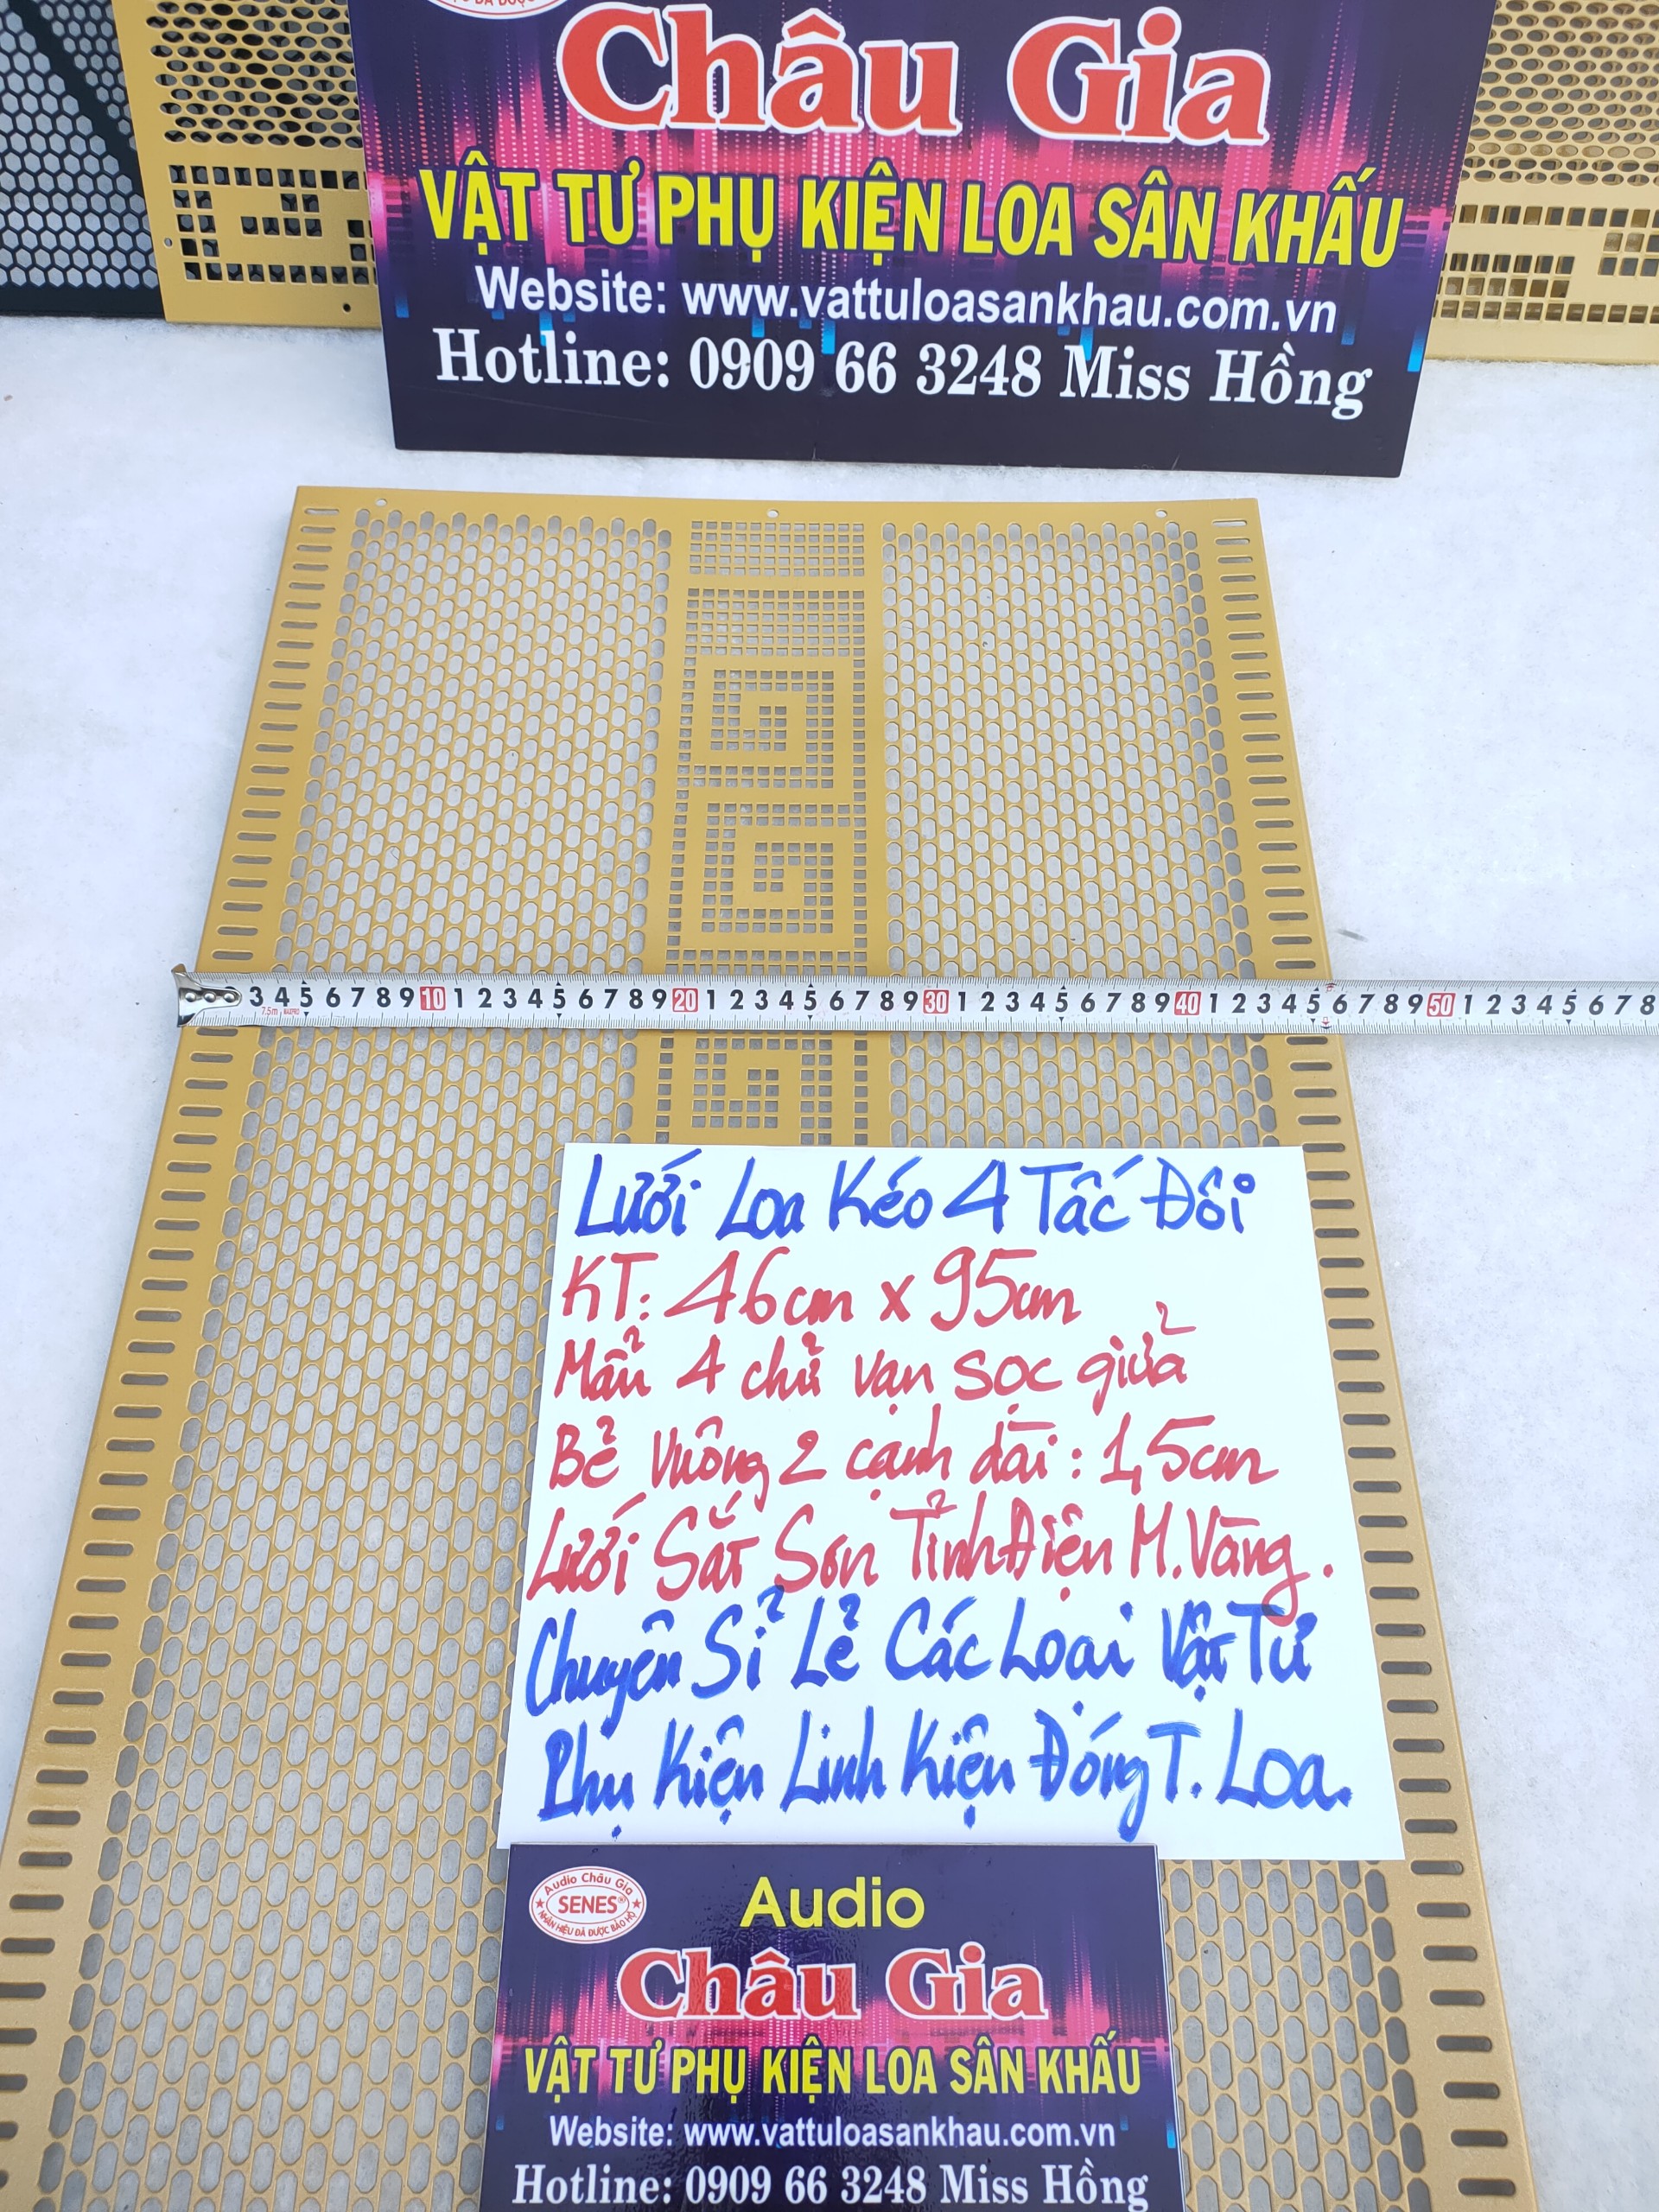 Châu Gia
VẬT TƯ PHỤ KIỆN LOA SÂN KHẤU
Website: www.vattuloasankhau.com.vn
Hotline: 0909 66 3248 Miss Hồng
3 4 5 6 7 8 9 10 1 2 3 4 5 6 7 8 9 20 1 2 3 4 5 6 7 8 9 30 1 2 3 4 5 6 7 8 9 40 1 2 3 4 5 6 7 8 9 50 1 2 3 4 5 6 7 8
7.5m
Lưới Loa Kéo 4 Tấc Đôi
KT: 46cm x 95cm
Mẩu 4 chử vạn sọc giửa
Bẻ vuông 2 cạnh dài: 1,5cm
Lưới Sắt Sơn Tỉnh Điện M.Vàng.
Chuyên Sỉ Lẻ Các Loại Vật Tư
Phụ Kiện Linh Kiện Đóng T. Loa.
Audio Châu Gia
SENES®
NHÃN HIỆU ĐÃ ĐƯỢC BẢO HỘ
Audio
Châu Gia
VẬT TƯ PHỤ KIỆN LOA SÂN KHẤU
Website: www.vattuloasankhau.com.vn
Hotline: 0909 66 3248 Miss Hồng